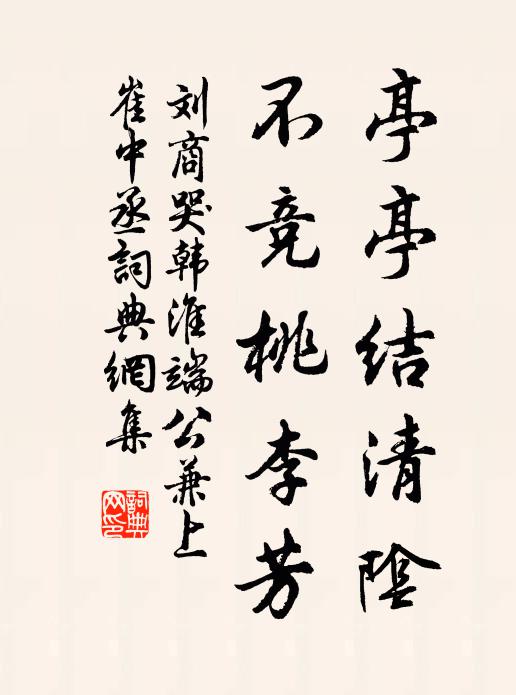 亭亭结清陰
不竞桃李芳
刘商哭韩淮端公兼上
崔中丞詞典網集
詞典
网印